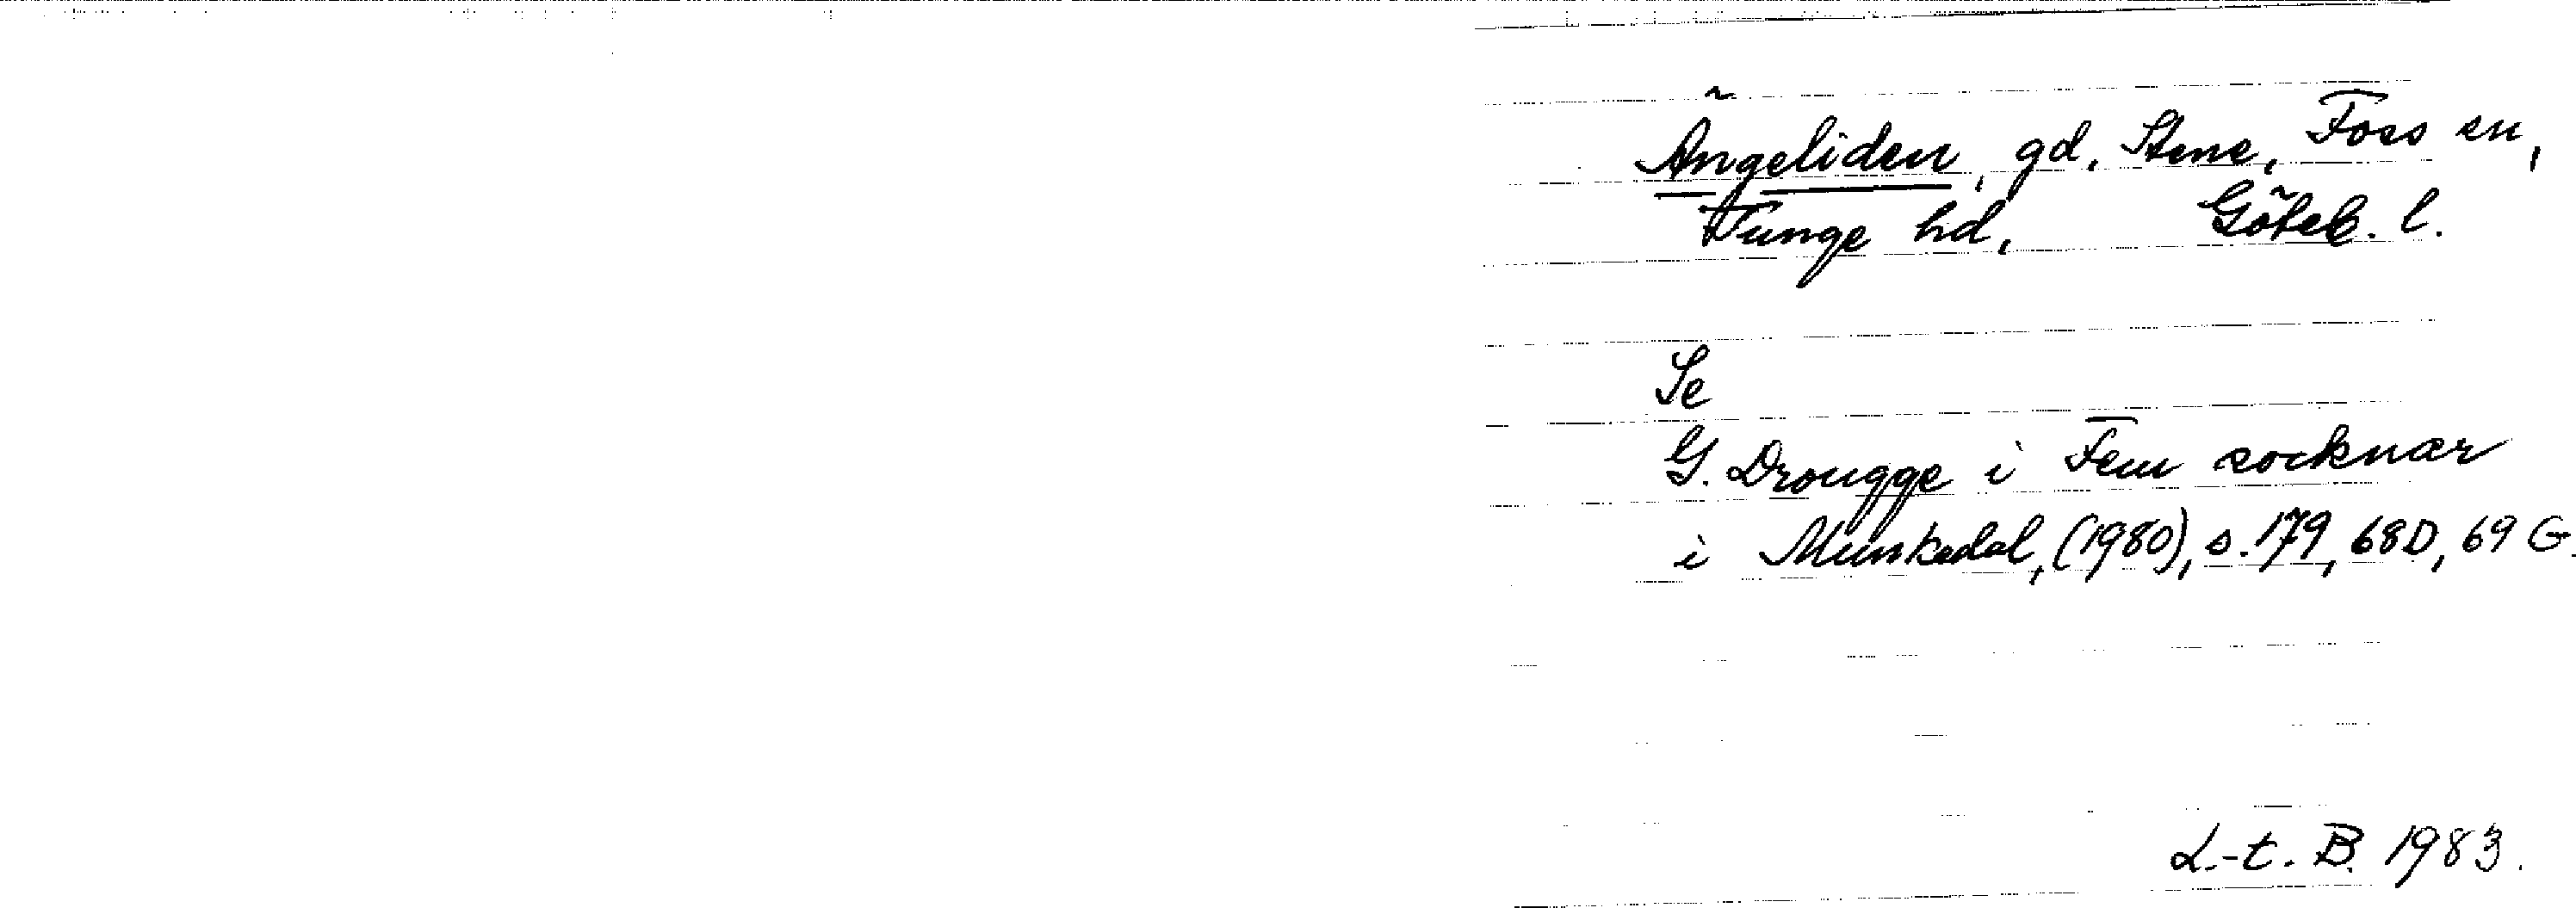 Ängeliden, gd, Stene, Foss sn,
Tunge hd, Göteb. l.
Se
G. Drougge i Fem socknar
i Munkedal, (1980), s. 179, 68D, 69 G.
L.-t. B. 1983.